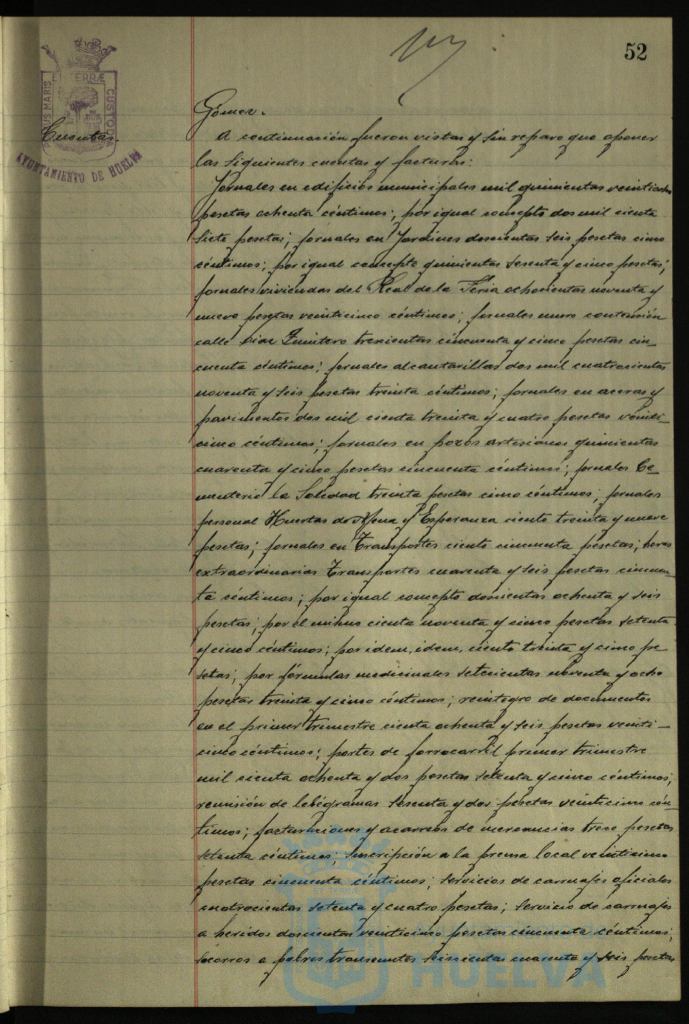 52
PORTUS MARIS ET TERRÆ CUSTODIA
AYUNTAMIENTO DE HUELVA
Cuentas.
Gómez.
A continuación fueron vistas y sin reparo que oponer
las siguientes cuentas y facturas:
Jornales en edificios municipales mil quinientas veintiocho
pesetas ochenta céntimos; por igual concepto dos mil ciento
siete pesetas; jornales en Jardines doscientas seis pesetas cinco
céntimos; por igual concepto quinientas sesenta y cinco pesetas;
jornales viviendas del Real de la Feria ochocientas noventa y
nueve pesetas veinticinco céntimos; jornales muro contención
calle Quintero trescientas cincuenta y cinco pesetas cin-
cuenta céntimos; jornales alcantarillas dos mil cuatrocientas
noventa y seis pesetas treinta céntimos; jornales en aceras y
pavimentos dos mil ciento treinta y cuatro pesetas veinti-
cinco céntimos; jornales en pozos artesianos quinientas
cuarenta y cinco pesetas cincuenta céntimos; jornales Ce-
menterio la Soledad treinta pesetas cinco céntimos; jornales
personal Huertas de Mena y Esperanza ciento treinta y nueve
pesetas; jornales en Transportes ciento cincuenta pesetas; horas
extraordinarias Transportes cuarenta y seis pesetas cincuen-
ta céntimos; por igual concepto doscientas ochenta y seis
pesetas; por el mismo ciento noventa y cinco pesetas setenta
y cinco céntimos; por idem, idem, ciento treinta y cinco pe-
setas; por fórmulas medicinales setecientas noventa y ocho
pesetas treinta y cinco céntimos; reintegro de documentos
en el primer trimestre ciento ochenta y seis pesetas veinti-
cinco céntimos; portes de ferrocarril primer trimestre
mil ciento ochenta y dos pesetas setenta y cinco céntimos;
remisión de telegramas sesenta y dos pesetas veinticinco cén-
timos; facturaciones y acarreos de mercancias trece pesetas
setenta céntimos; suscripción a la prensa local veinticinco
pesetas cincuenta céntimos; servicios de carruajes oficiales
cuatrocientas setenta y cuatro pesetas; servicio de carruajes
a heridos doscientas veinticinco pesetas cincuenta céntimos;
socorros a pobres transeuntes seiscientas cuarenta y seis pesetas
HUELVA